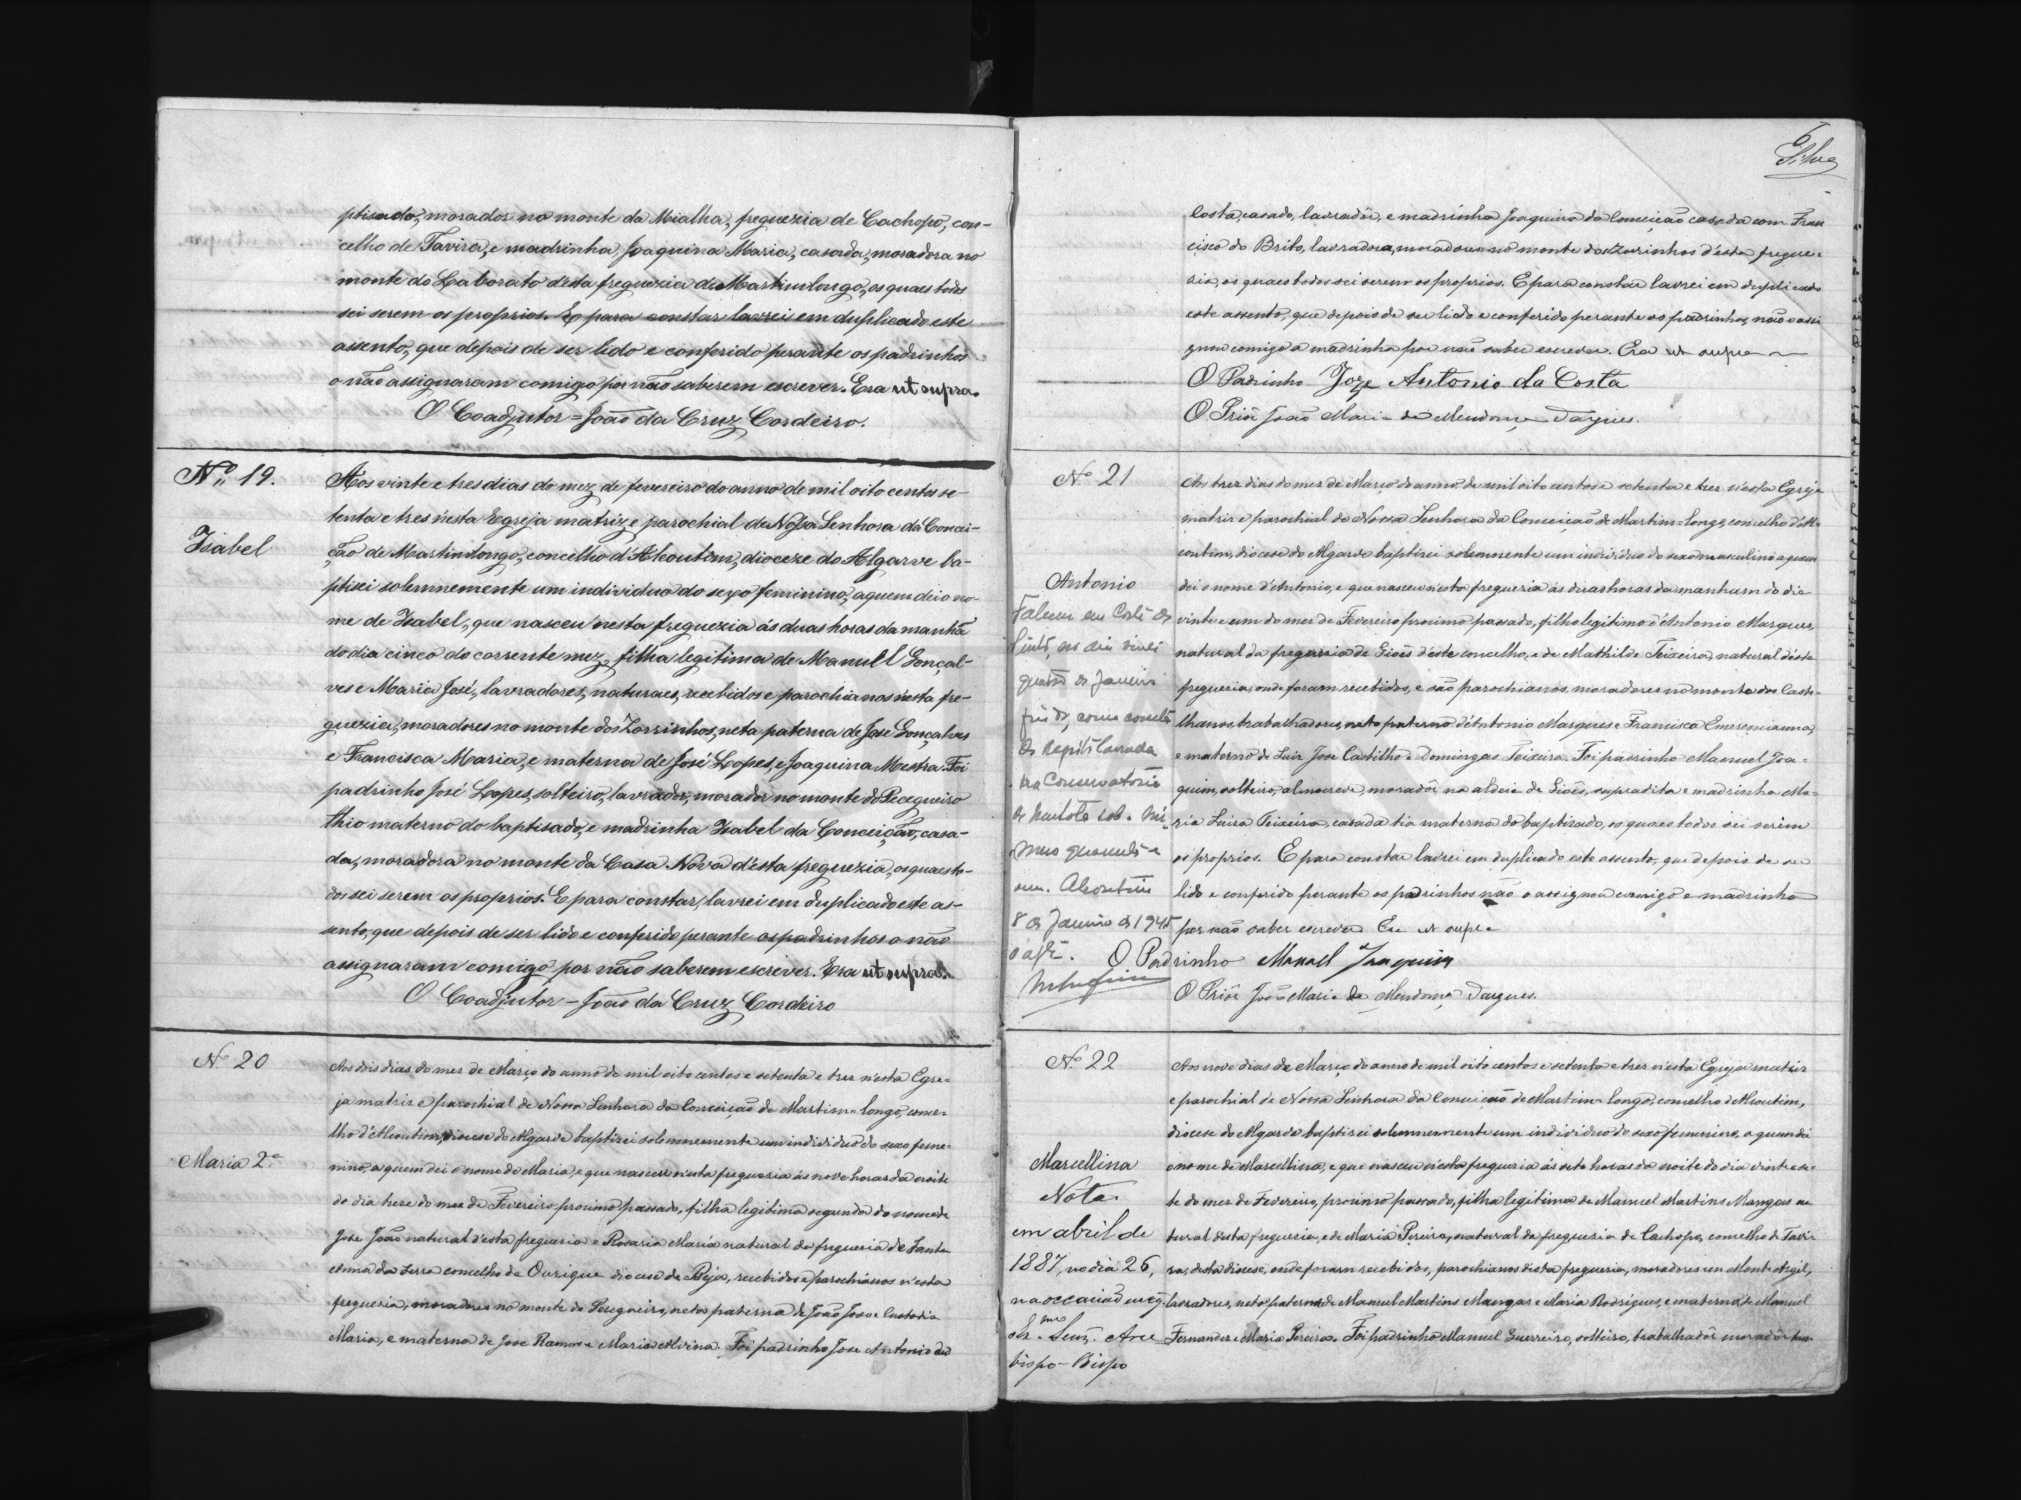 ptisado, morador no monte da Mialha, freguezia de Cachopo, con-
celho de Tavira, e madrinha Joaquina Maria, casada, moradora no
monte do Laborato d'esta freguezia de Martimlongo, os quaes todos
sei serem os proprios. E para constar lavrei em duplicado este
assento, que depois de ser lido e conferido perante os padrinhos
o não assignaram comigo por não saberem escrever. Era ut supra.
O Coadjutor = João da Cruz Cordeiro.
Nº 19.
Isabel
Aos vinte e tres dias do mez de fevereiro do anno de mil oito centos se-
tenta e tres n'esta Egreja matriz e parochial de Nossa Senhora da Concei-
ção de Martimlongo, concelho d'Alcoutim, dioceze do Algarve ba-
ptisei solemnemente um individuo do sexo feminino, a quem dei o no-
me de Isabel, que nasceu nesta freguezia ás duas horas da manhã
do dia cinco do corrente mez, filha legitima de Manuel Gonçal-
ves e Maria José, lavradores, naturaes, recebidos e parochianos n'esta fre-
guezia, moradores no monte dos Zorrinhos, neta paterna de José Gonçalves
e Francisca Maria, e materna de José Lopes, e Joaquina Mestra. Foi
padrinho José Lopes, solteiro, lavrador, morador no monte do Pecegueiro
thio materno do baptisado, e madrinha Isabel da Conceição, casa-
da, moradora no monte da Casa Nova d'esta freguezia, os quaes to-
dos sei serem os proprios. E para constar, lavrei em duplicado este as-
sento, que depois de ser lido e conferido perante os padrinhos o não
assignaram comigo por não saberem escrever. Era ut supra.
O Coadjutor = João da Cruz Cordeiro
Nº 20
Maria 2ª
Aos dois dias do mez de Março do anno de mil oito centos e setenta e trez n'esta Egre-
ja matriz e parochial de Nossa Senhora da Conceição de Martim-longo, conce-
lho d'Alcoutim, diocese do Algarve baptizei solemnemente um individuo do sexo femi-
nino, a quem dei o nome de Maria, e que nasceu n'esta freguesia ás nove horas da noite
do dia treze do mez de Fevereiro proximo passado, filha legitima segunda do nome de
José João natural d'esta freguesia e Rosaria Maria natural da freguesia de Santa
Anna da Serra concelho de Ourique diocese de Beja, recebidos e parochianos n'esta
freguesia, moradores no monte do Pecegueiro, neta paterna de João José e Custodia
Maria, e materna de José Ramos e Maria Alvina. Foi padrinho José Antonio da
6
Silva
Costa, casado, lavradôr, e madrinha Joaquina da Conceição casada com Fran
cisco de Brito, lavradora, moradores no monte dos Zorrinhos d'esta fregue-
sia, os quaes todos sei serem os proprios. E para constar lavrei em duplicado
este assento, que depois de ser lido e conferido perante os padrinhos, não o assi
gnou comigo a madrinha por não saber escrever. Era ut supra
O Padrinho Joze Antonio da Costa
O Priôr João Maria de Mendonça Dargues.
Nº 21
Antonio
Faleceu em
no dia vinte
quatro de Janeiro
como consta
do Registo lavrado
na Conservatoria
sob. nú-
mero quarenta e
um. Alcoutim
8 de Janeiro de 1945
Aos trez dias do mez de Março do anno de mil oito centos e setenta e trez n'esta Egreja
matriz e parochial de Nossa Senhora da Conceição de Martim-longo, concelho d'Al-
coutim, diocese do Algarve baptizei solemnemente um individuo do sexo masculino a quem
dei o nome d'Antonio, e que nasceu n'esta freguesia ás duas horas da manham do dia
vinte e um do mez de Fevereiro proximo passado, filho legitimo d'Antonio Marques,
natural da freguesia de Giões d'este concelho, e de Mathilde Teixeira, natural d'esta
freguesia, onde foram recebidos, e são parochianos moradores no monte dos Casti-
lhanos, trabalhadores, neto paterno d'Antonio Marques e Francisca Emerenciana,
e materno de Luiz José Castilho e Domingas Teixeira. Foi padrinho Manuel Joa-
quim, solteiro, almocreve, moradôr na aldeia de Giões, supradita e madrinha Ma-
ria Luiza Teixeira, casada tia materna do baptizado, os quaes todos sei serem
os proprios. E para constar lavrei em duplicado este assento, que depois de ser
lido e conferido perante os padrinhos não o assignou comigo a madrinha
por não saber escrever. Era ut supra
O Padrinho Manoel Joaquim
O Priôr João Maria de Mendonça Dargues.
Nº 22
Marcellina
Nota.
em abril de
1887, no dia 26,
na occasião
Arce
bispo-Bispo
Aos nove dias de Março do anno de mil oito centos e setenta e trez n'esta Egreja matriz
e parochial de Nossa Senhora da Conceição de Martim-longo, concelho d'Alcoutim,
diocese do Algarve baptizei solemnemente um individuo do sexo feminino, a quem dei
o nome de Marcellina, e que nasceu n'esta freguesia ás oito horas da noite do dia vinte e se-
te do mez de Fevereiro, proximo passado, filha legitima de Manuel Martins Mangas na
tural d'esta freguesia, e de Maria Pereira, natural da freguesia de Cachopo, concelho de Tavi-
ra, d'esta diocese, onde foram recebidos, parochianos d'esta freguesia, moradores em Monte Argil,
lavradores, neta paterna de Manuel Martins Mangas e Maria Rodrigues, e materna de Manuel
Fernandes e Maria Pereira. Foi padrinho Manuel Guerreiro, solteiro, trabalhadôr moradôr